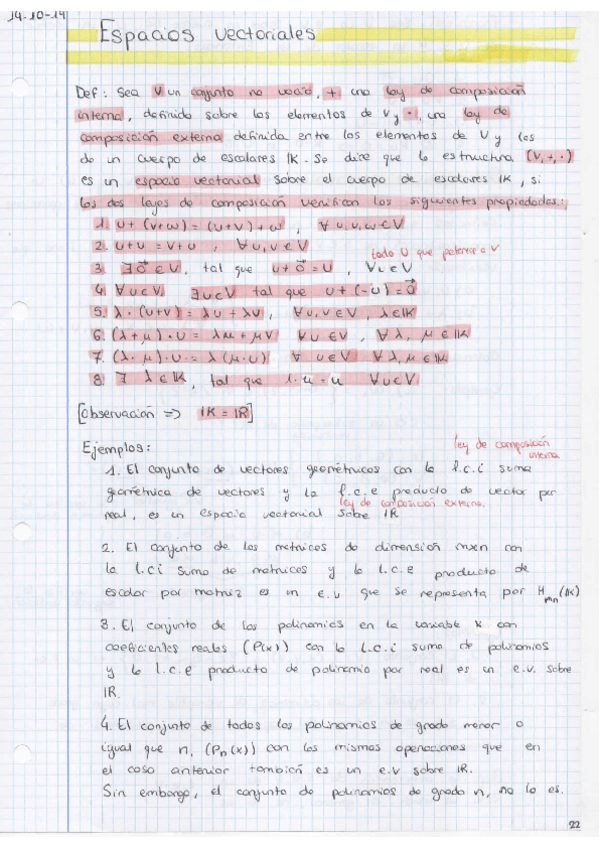 14-10-19
Espacios vectoriales
Def: Sea V un conjunto no vacío, + una ley de composición
interna, definida sobre los elementos de V y ·, una ley de
composición externa definida entre los elementos de V y los
de un cuerpo de escalares IK. Se dice que la estructura (V,+,·)
es un espacio vectorial sobre el cuerpo de escalares IK, si
las dos leyes de composición verifican las siguientes propiedades:
1. u+(v+w) = (u+v)+w , ∀ u,v,w ∈ V
2. u+v = v+u , ∀ u,v ∈ V
todo U que pertenece a V
3. ∃ 0⃗ ∈ V, tal que u+0⃗ = u , ∀u ∈ V
4. ∀u ∈ V, ∃u ∈ V tal que u+(-u) = 0⃗
5. λ·(u+v) = λu + λv, ∀ u,v ∈ V, λ ∈ IK
6. (λ+μ)·u = λu + μv ∀u ∈ V, ∀ λ, μ ∈ IK
7. (λ·μ)·u = λ(μ·u) ∀ u ∈ V ∀ λ, μ ∈ IK
8. ∃ λ ∈ IK, tal que 1·u = u ∀u ∈ V
[Observación => IK = IR]
Ejemplos:
ley de composición
interna
1. El conjunto de vectores geométricos con la l.c.i suma
geométrica de vectores y la l.c.e producto de vector por
ley de composición externa.
real, es un espacio vectorial sobre IR
2. El conjunto de las matrices de dimensión mxn con
la l.c.i suma de matrices y la l.c.e producto de
escalar por matriz es un e.v que se representa por Mmn(IK)
3. El conjunto de los polinomios en la variable x con
coeficientes reales (P(x)) con la l.c.i suma de polinomios
y la l.c.e producto de polinomio por real es un e.v. sobre
IR.
4. El conjunto de todos los polinomios de grado menor o
igual que n, (Pn(x)) con las mismas operaciones que en
el caso anterior también es un e.v sobre IR.
Sin embargo, el conjunto de polinomios de grado n, no lo es.
22